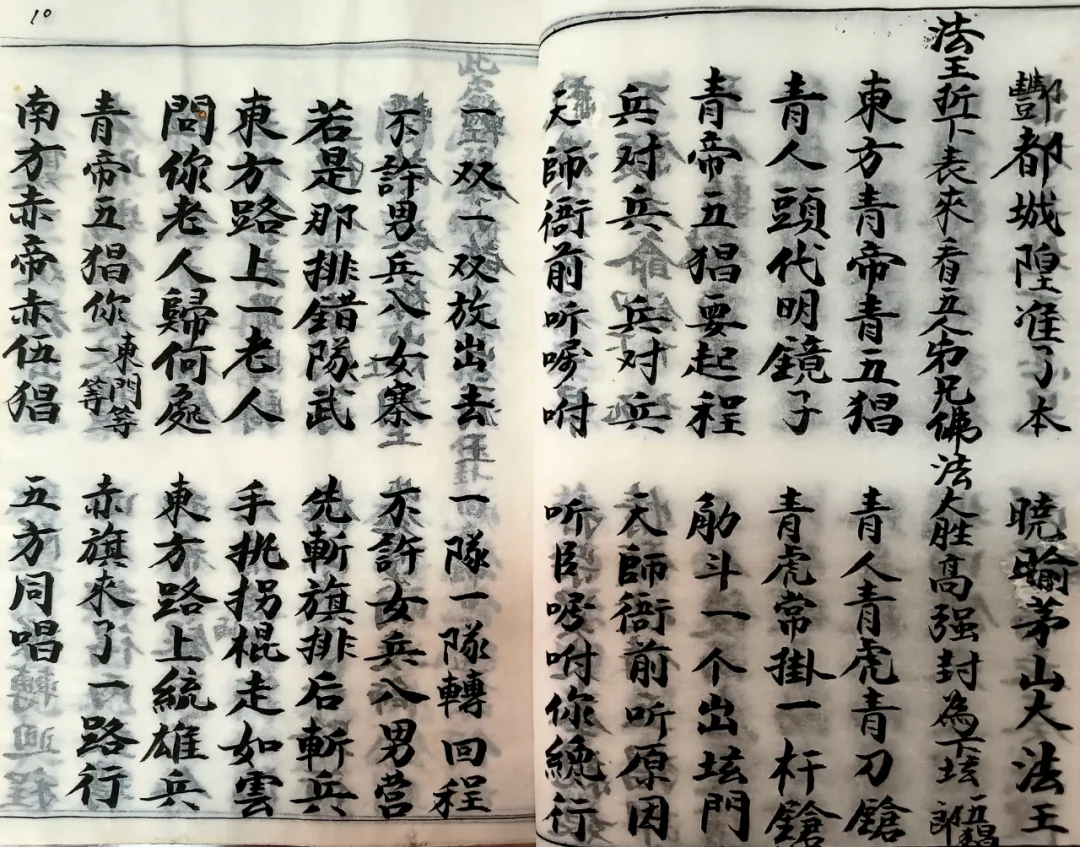 酆都城隍准了本 曉瑜茅山大法王
法王折下表來看五人弟兄佛法大胜高强封為下坛五猖郎
東方青帝青五猖 青人青虎青刀鎗
青人頭代明鏡子 青虎常掛一杆鎗
青帝五猖要起程 觔斗一个出坛門
兵对兵兵对兵 天師衙前听原因
天師衙前听嘱咐 听臣嘱咐你纔行
一双一双放出去 一隊一隊轉回程
不許男兵入女寨 不許女兵入男营
若是那排錯隊武 先斬旗排后斬兵
東方路上一老人 手挑拐棍走如雲
問你老人歸何處 東方路上統雄兵
青帝五猖你一等 東門等 赤旗来了一路行
南方赤帝赤伍猖 五方同唱
10